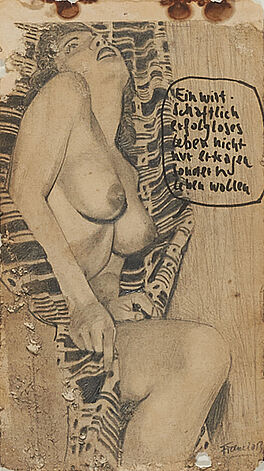 Ein wirt-
schaftlich
erfolgloses
Leben nicht
nur ertragen
sondern
leben wollen